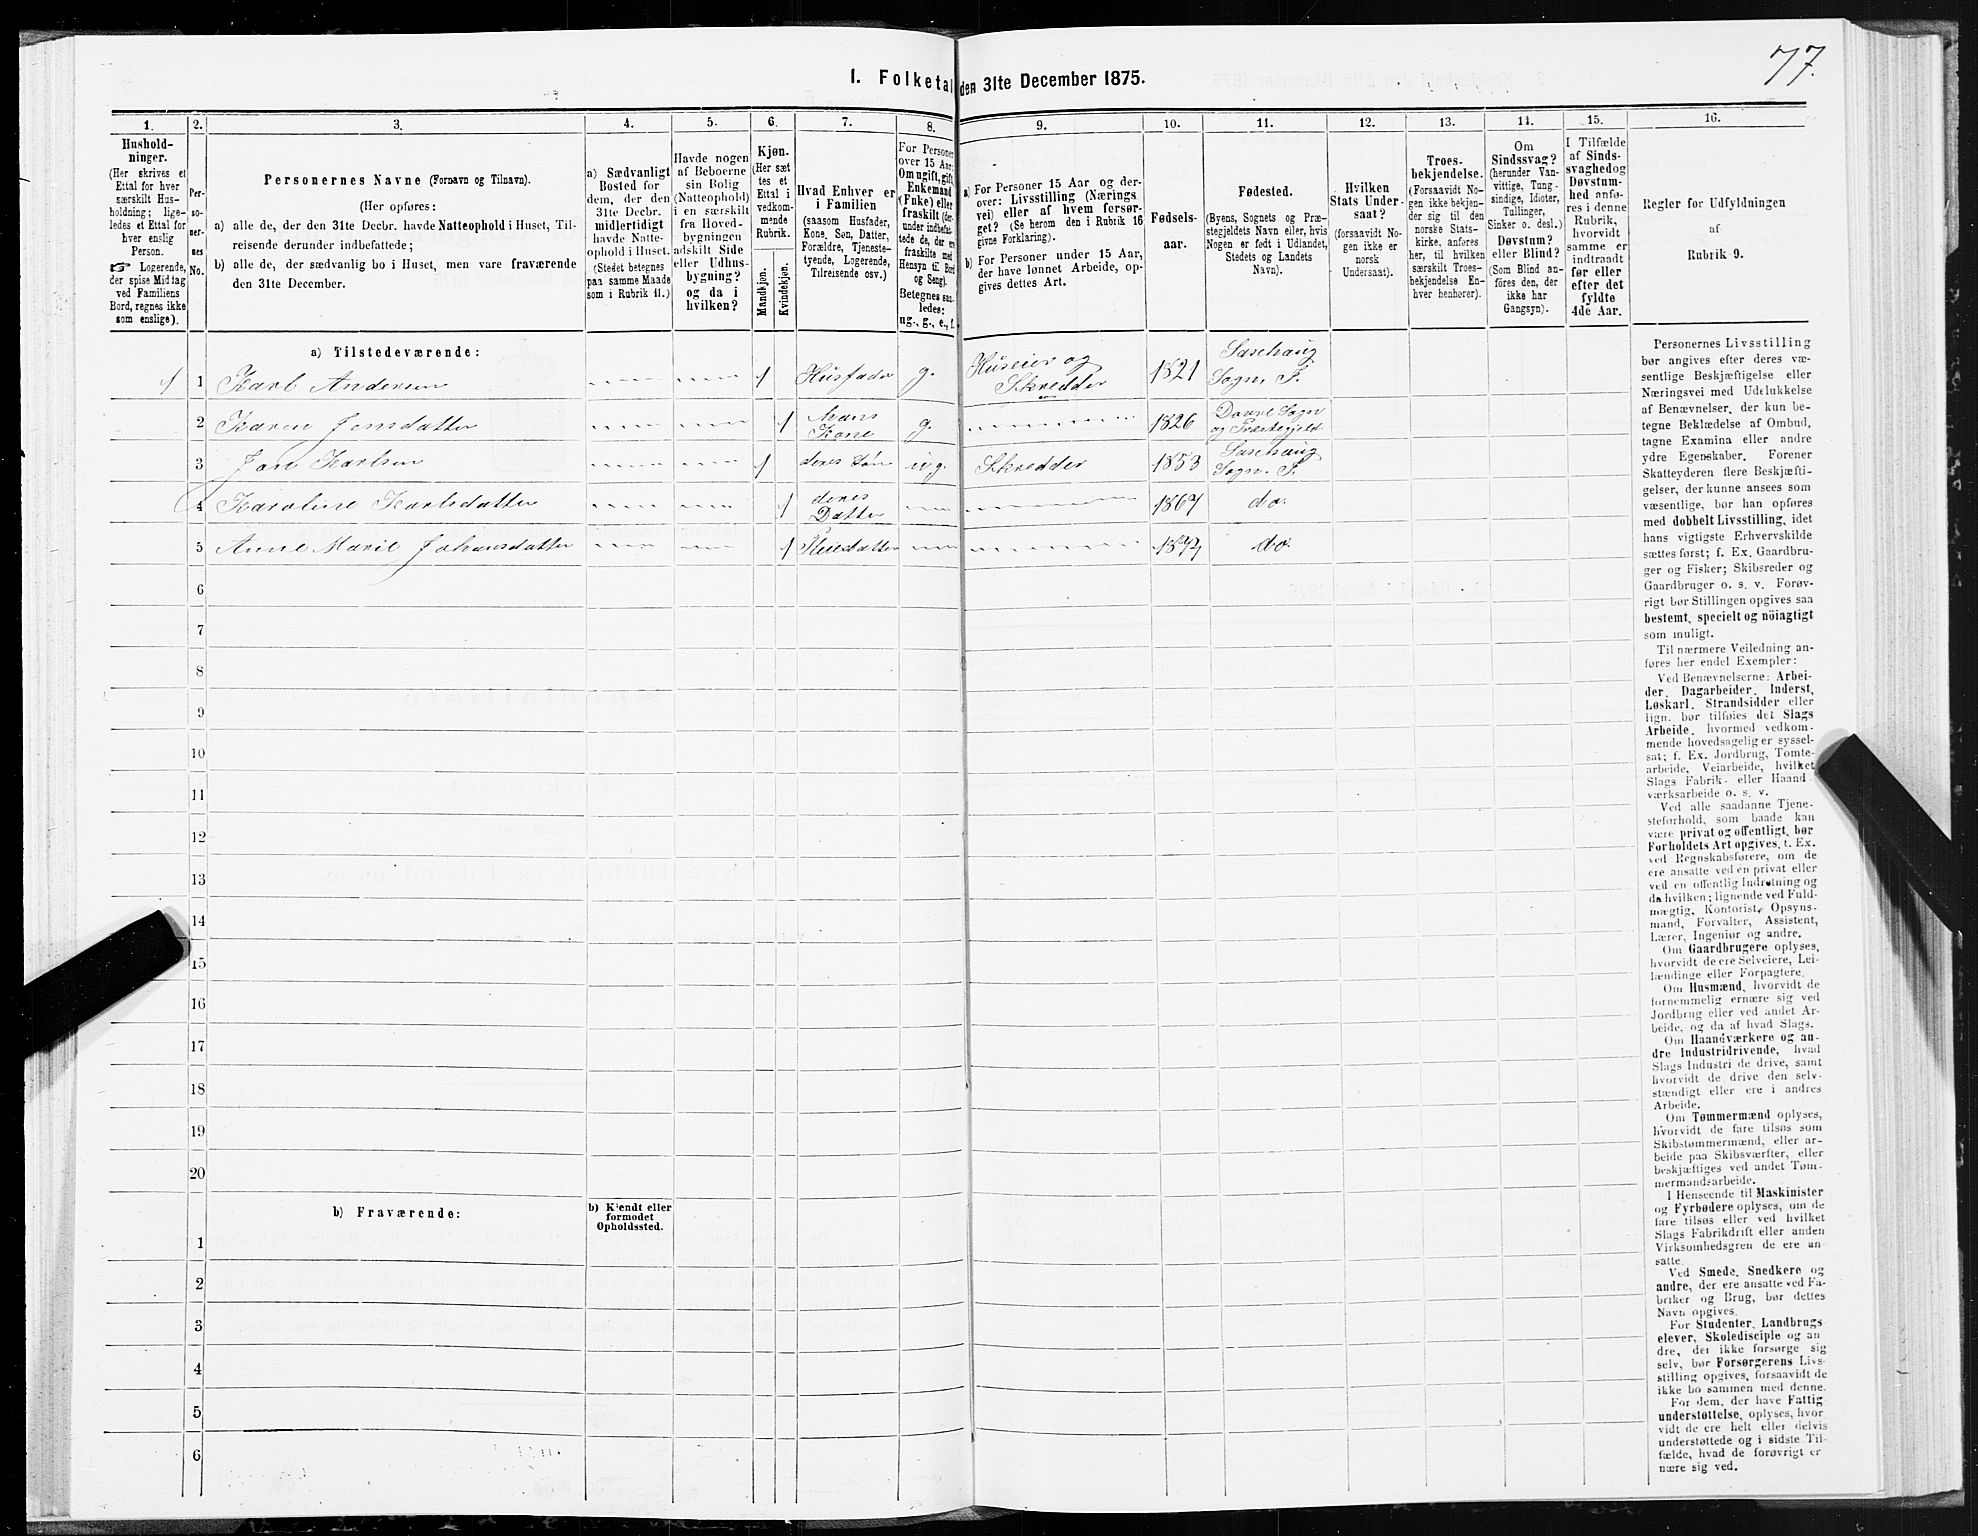 77.
1. Folketal den 31te December 1875.
1. 2. 3. 4. 5. 6. 7. 8. 9. 10. 11. 12. 13. 14. 15. 16.
Hushold-
ninger.
(Her skrives et
Ettal for hver
særskilt Hus-
holdning; lige-
ledes et Ettal for
hver enslig
Person.
☞ Logerende,
der spise Middag
ved Familiens
Bord, regnes ikke
som enslige).
Per-
so-
ner-
nes
No.
Personernes Navne (Fornavn og Tilnavn).
(Her opføres:
a) alle de, der den 31te Decbr. havde Natteophold i Huset, Til-
reisende derunder indbefattede;
b) alle de, der sædvanlig bo i Huset, men vare fraværende
den 31te December.
a) Sædvanligt
Bosted for
dem, der den
31te Decbr.
midlertidigt
havde Natte-
ophold i Huset.
(Stedet betegnes
paa samme Maade
som i Rubrik 11.)
Havde nogen
af Beboerne
sin Bolig
(Natteophold)
i en særskilt
fra Hoved-
bygningen
adskilt Side
eller Udhus-
bygning?
og da i
hvilken?
Kjøn.
(Her sæt
tes et
Ettal i
vedkom-
mende
Rubrik.
Mandkjøn.
Kvindekjøn.
Hvad Enhver er
i Familien
(saasom Husfader,
Kone, Søn, Datter,
Forældre, Tjeneste-
tyende, Logerende,
Tilreisende osv.)
For Personer
over 15 Aar:
Om ugift, gift,
Enkemand
(Enke) eller
fraskilt (der-
under indbefat-
tede de, der ere
fraskilte med
Hensyn til Bord
og Seng).
Betegnes saa-
ledes:
ug., g., e., f.
a) For Personer 15 Aar og der-
over: Livsstilling (Nærings
vei) eller af hvem forsør-
get? (Se herom den i Rubrik 16
givne Forklaring).
b) For Personer under 15 Aar,
der have lønnet Arbeide, op-
gives dettes Art.
Fødsels-
aar.
Fødested.
(Byens, Sognets og Præ-
stegjeldets Navn eller, hvis
Nogen er født i Udlandet,
Stedets og Landets
Navn).
Hvilken
Stats Under-
saat?
(forsaavidt No-
gen ikke er
norsk
Undersaat).
Troes-
bekjendelse.
(Forsaavidt No-
gen ikke bekjen-
der sig til den
norske Stats-
kirke, anføres
her, til hvilken
særskilt Troes-
bekjendelse En-
hver henhører).
Om
Sindssvag?
(herunder Van-
vittige, Tung-
sindige, Idioter,
Tullinger,
Sinker o. desl.)
Døvstum?
eller Blind?
(Som Blind an-
føres den, der
ikke har
Gangsyn).
I Tilfælde
af Sinds-
svaghed og
Døvstum-
hed anfø-
res i denne
Rubrik,
hvorvidt
samme er
indtraadt
før eller
efter det
fyldte
4de Aar.
Regler for Udfyldningen
af
Rubrik 9.
a) Tilstedeværende:
1 1 Karl Andersen 1 Husfader g. Huseier og Skredder 1821 Sogn. P.
2 Karen Jensdatter 1 Hans Kone g. 1826 Sogn og Præstegjeld
3 Jon Karlsen 1 deres Søn ug. Skredder 1853 Sogn. P.
4 Karoline Karlsdatter 1 deres Datter 1867 do.
5 Anne Marie Johansdatter 1 Pleiedatter do
6
7
8
9
10
11
12
13
14
15
16
17
18
19
20
b) Fraværende:
b) Kjendt eller
formodet
Opholdssted.
1
2
3
4
5
6
Personernes Livsstilling
bør angives efter deres væ-
sentlige Beskjæftigelse eller
Næringsvei med Udelukkelse
af Benævnelser, der kun be-
tegne Beklædelse af Ombud,
tagne Examina eller andre
ydre Egenskaber. Forener
Skatteyderen flere Beskjæfti-
gelser, der kunne ansees som
væsentlige, bør han opføres
med dobbelt Livsstilling, idet
hans vigtigste Erhvervskilde
sættes først; f. Ex. Gaardbru-
ger og Fisker; Skibsreder og
Gaardbruger o. s. v. Forøv-
rigt bør Stillingen opgives saa
bestemt, specielt og nöiagtigt
som muligt.
Til nærmere Veiledning an-
føres her endel Exempler:
Ved Benævnelserne: Arbei-
der, Dagarbeider, Inderst,
Løskarl, Strandsidder eller
lign. bør tilføies det Slags
Arbeide, hvormed vedkom-
mende hovedsagelig er syssel-
sat; f. Ex. Jordbrug, Tomte-
arbeide, Veiarbeide, hvilket
Slags Fabrik- eller Haand
værksarbeide o. s. v.
Ved alle saadanne Tjene-
steforhold, som baade kan
være privat og offentligt, bør
Forholdets Art opgives, f. Ex.
ved Regnskabsførere, om de
ere ansatte ved en privat eller
ved en offentlig Indretning og
da hvilken; lignende ved Fuld-
mægtig, Kontorist, Opsyns-
mand, Forvalter, Assistent,
Lærer, Ingeniør og andre.
Om Gaardbrugere oplyses,
hvorvidt de ere Selveiere, Lei-
lændinge eller Forpagtere.
Om Husmænd, hvorvidt de
fornemmelig ernære sig ved
Jordbrug eller ved andet Ar-
beide, og da af hvad Slags.
Om Haandværkere og an-
dre Industridrivende, hvad
Slags Industri de drive, samt
hvorvidt de drive den selv-
stændigt eller ere i andres
Arbeide.
Om Tømmermænd oplyses,
hvorvidt de fare tilsøs som
Skibstømmermænd, eller ar-
beide paa Skibsværfter, eller
beskjæftiges ved andet Tøm-
mermandsarbeide.
I Henseende til Maskinister
og Fyrbødere oplyses, om de
fare tilsøs eller ved hvilket
Slags Fabrikdrift eller anden
Virksomhedsgren de ere an-
satte.
Ved Smede, Snedkere og
andre, der ere ansatte ved Fa-
briker og Brug, bør dettes
Navn opgives.
For Studenter, Landbrugs-
elever, Skoledisciple og an
dre, der ikke forsørge sig
selv, bør Forsørgerens Livs-
stilling opgives, forsaavidt de
ikke bo sammen med denne.
For dem, der have Fattig
understøttelse, oplyses, hvor
vidt de ere helt eller delvis
understøttede og i sidste Til-
fælde, hvad de forøvrigt er
nære sig ved.